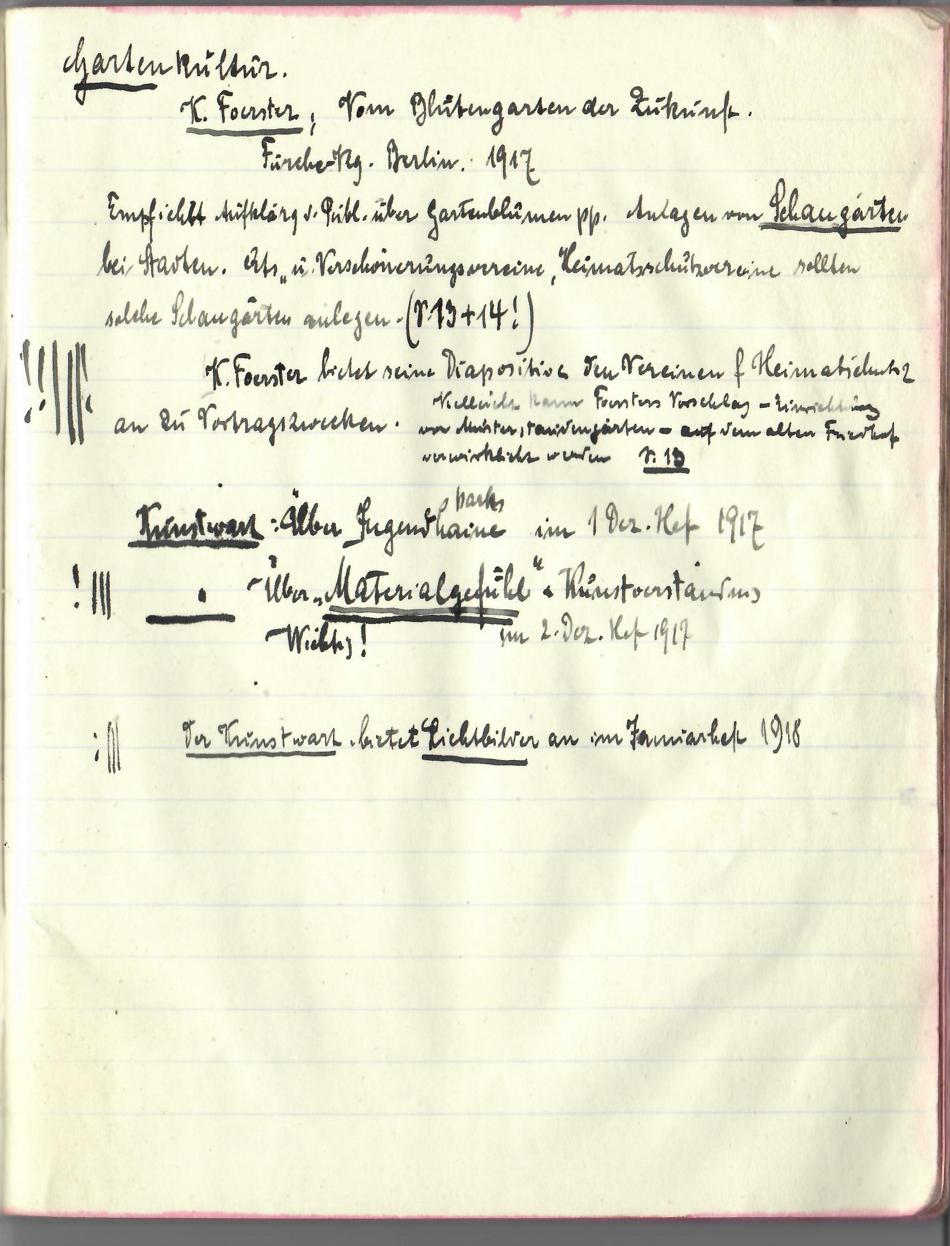 Gartenkultur.
K. Foerster, Vom Blütengarten der Zukunft.
Furche-Vlg. Berlin. 1917
Empfiehlt Aufklärg d. Publ. über Gartenblumen pp. Anlagen von Schaugärten
bei Städten. u. Verschönerungsvereine, Heimatschutzvereine sollten
solche Schaugärten anlegen. (S. 13 + 14!)
K. Foerster bietet seine Diapositive den Vereinen f Heimatschutz
an zu Vortragszwecken.
Vielleicht kann Foersters Vorschlag – Einrichtung
von Musterstaudengärten – auf dem alten Friedhof
verwirklicht werden S. 13
parks
Kunstwart: Über Jugendhaine im 1 Dez. Hef 1917
! ||| — " — Über „Materialgefühl“ u Kunstverständnis
Wichtig! im 2. Dez. Hef 1917
Der Kunstwart bietet Lichtbilder an im Januarheft 1918